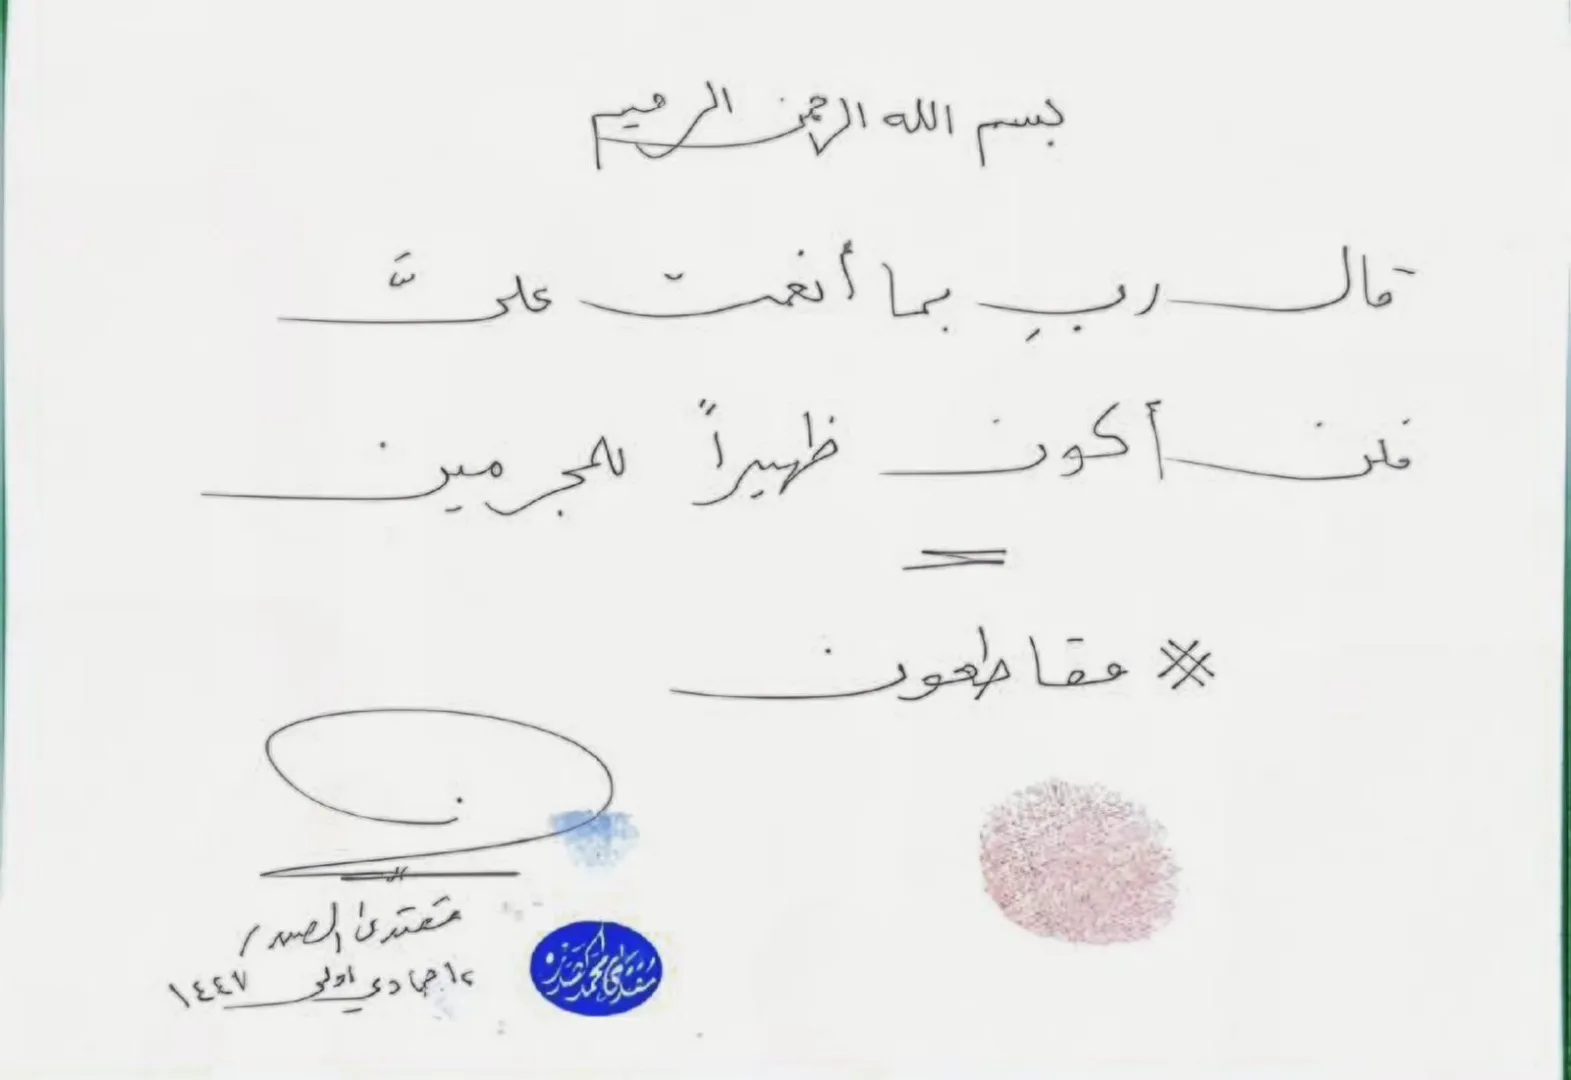 بسم الله الرحمن الرحيم
قال ربِ بما أنعمت عليَّ
فلن أكون ظهيراً للمجرمين
※ مقاطعون
مقتدى الصدر
جمادي اولى ١٤٤٧
مقتدى محمد الصدر